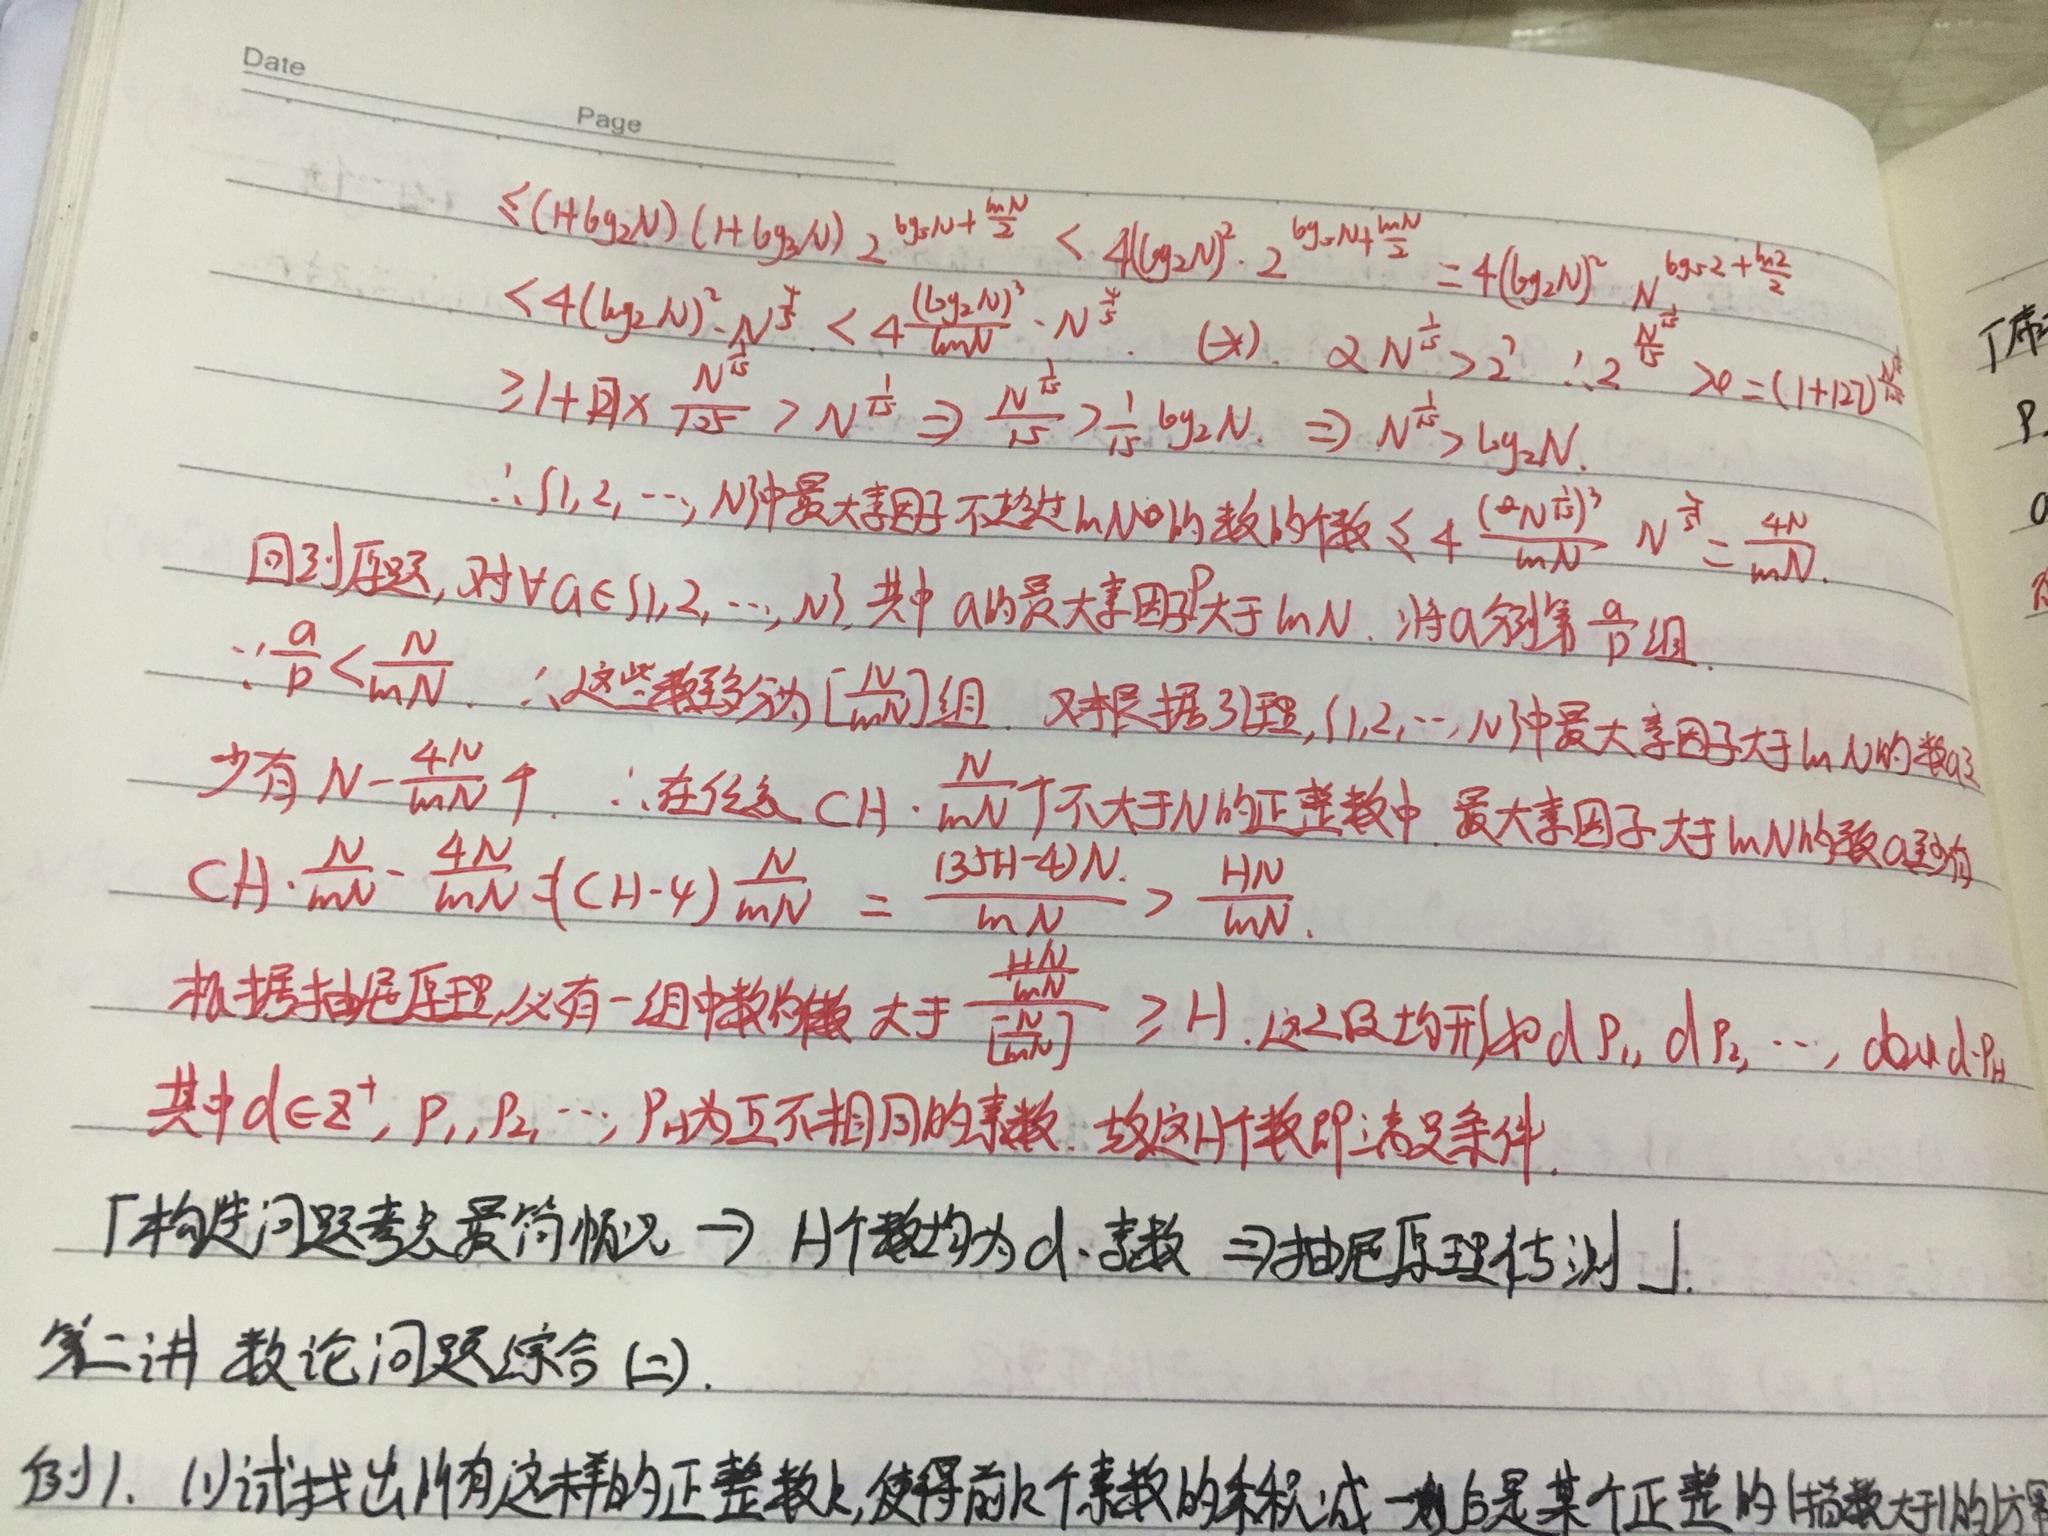 Date
Page
≤(1+log₂N)(1+log₃N) 2^(log₅N+lnN/2) < 4(log₂N)²·2^(log₅N+lnN/2) = 4(log₂N)² N^(log₅2+ln2/2)
<4(log₂N)²·N^(4/5) < 4 (log₂N)³/lnN · N^(4/5). (*). 又 N^(1/15) > 2⁷ ∴ 2^(N^(1/15)/15)
≥1+127× N^(1/15)/125 > N^(1/15) ⇒ N^(1/15)/15 > 1/15 log₂N. ⇒ N^(1/15) > log₂N.
∴{1,2,…,N}中最大素因子不超过lnN的数的个数≤4 (N^(1/15))³/lnN N^(4/5) = 4N/lnN.
回到原题,对∀a∈{1,2,…,N}.其中a的最大素因子P大于lnN.将a分到第a/p组.
∵a/p<N/lnN. ∴这些数分为[N/lnN]组. 又根据引理,{1,2,…,N}中最大素因子大于lnN的数a至
少有N-4N/lnN个. ∴在任意CH·N/lnN个不大于N的正整数中.最大素因子大于lnN的数a至少有
CH·N/lnN-4N/lnN=(CH-4)N/lnN = (3.5H-4)N/lnN > HN/lnN.
根据抽屉原理,必有一组中数的个数大于 (HN/lnN)/[N/lnN] ≥H. 均形如dP₁, dP₂, …, d·P_H
其中d∈Z⁺, P₁, P₂, …, P_H为互不相同的素数.故这H个数即满足条件.
「构造问题考虑最简情况→H个数均为d·素数⇒抽屉原理估测」.
第二讲 数论问题综合(二).
例1. (1)试找出所有这样的正整数k,使得前k个素数的乘积减一后是某个正整的(指数大于1的)方幂
「席
P